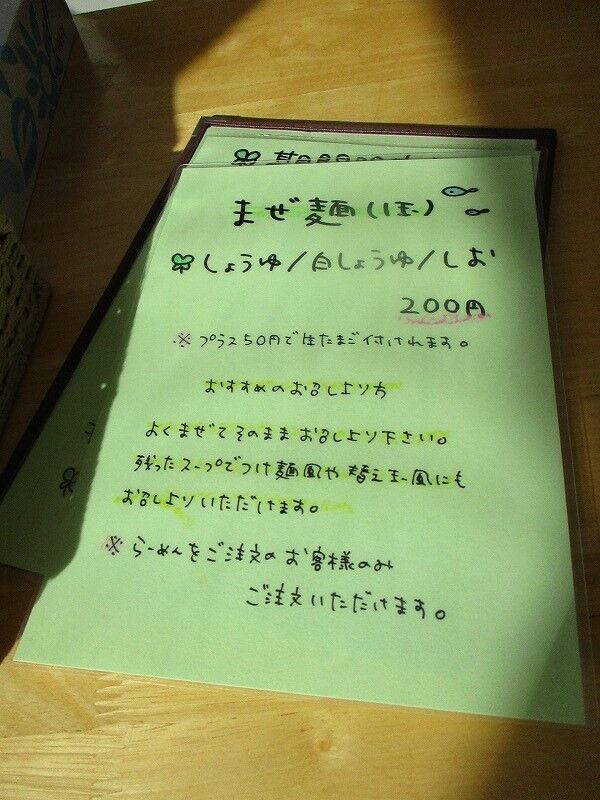 まぜ麺(1玉)
しょうゆ/白しょうゆ/しお
200円
※プラス50円で生たまご付けれます。
おすすめのお召し上り方
よくまぜてそのままお召し上り下さい。
残ったスープでつけ麺風や替え玉風にも
お召し上りいただけます。
※らーめんをご注文のお客様のみ
ご注文いただけます。